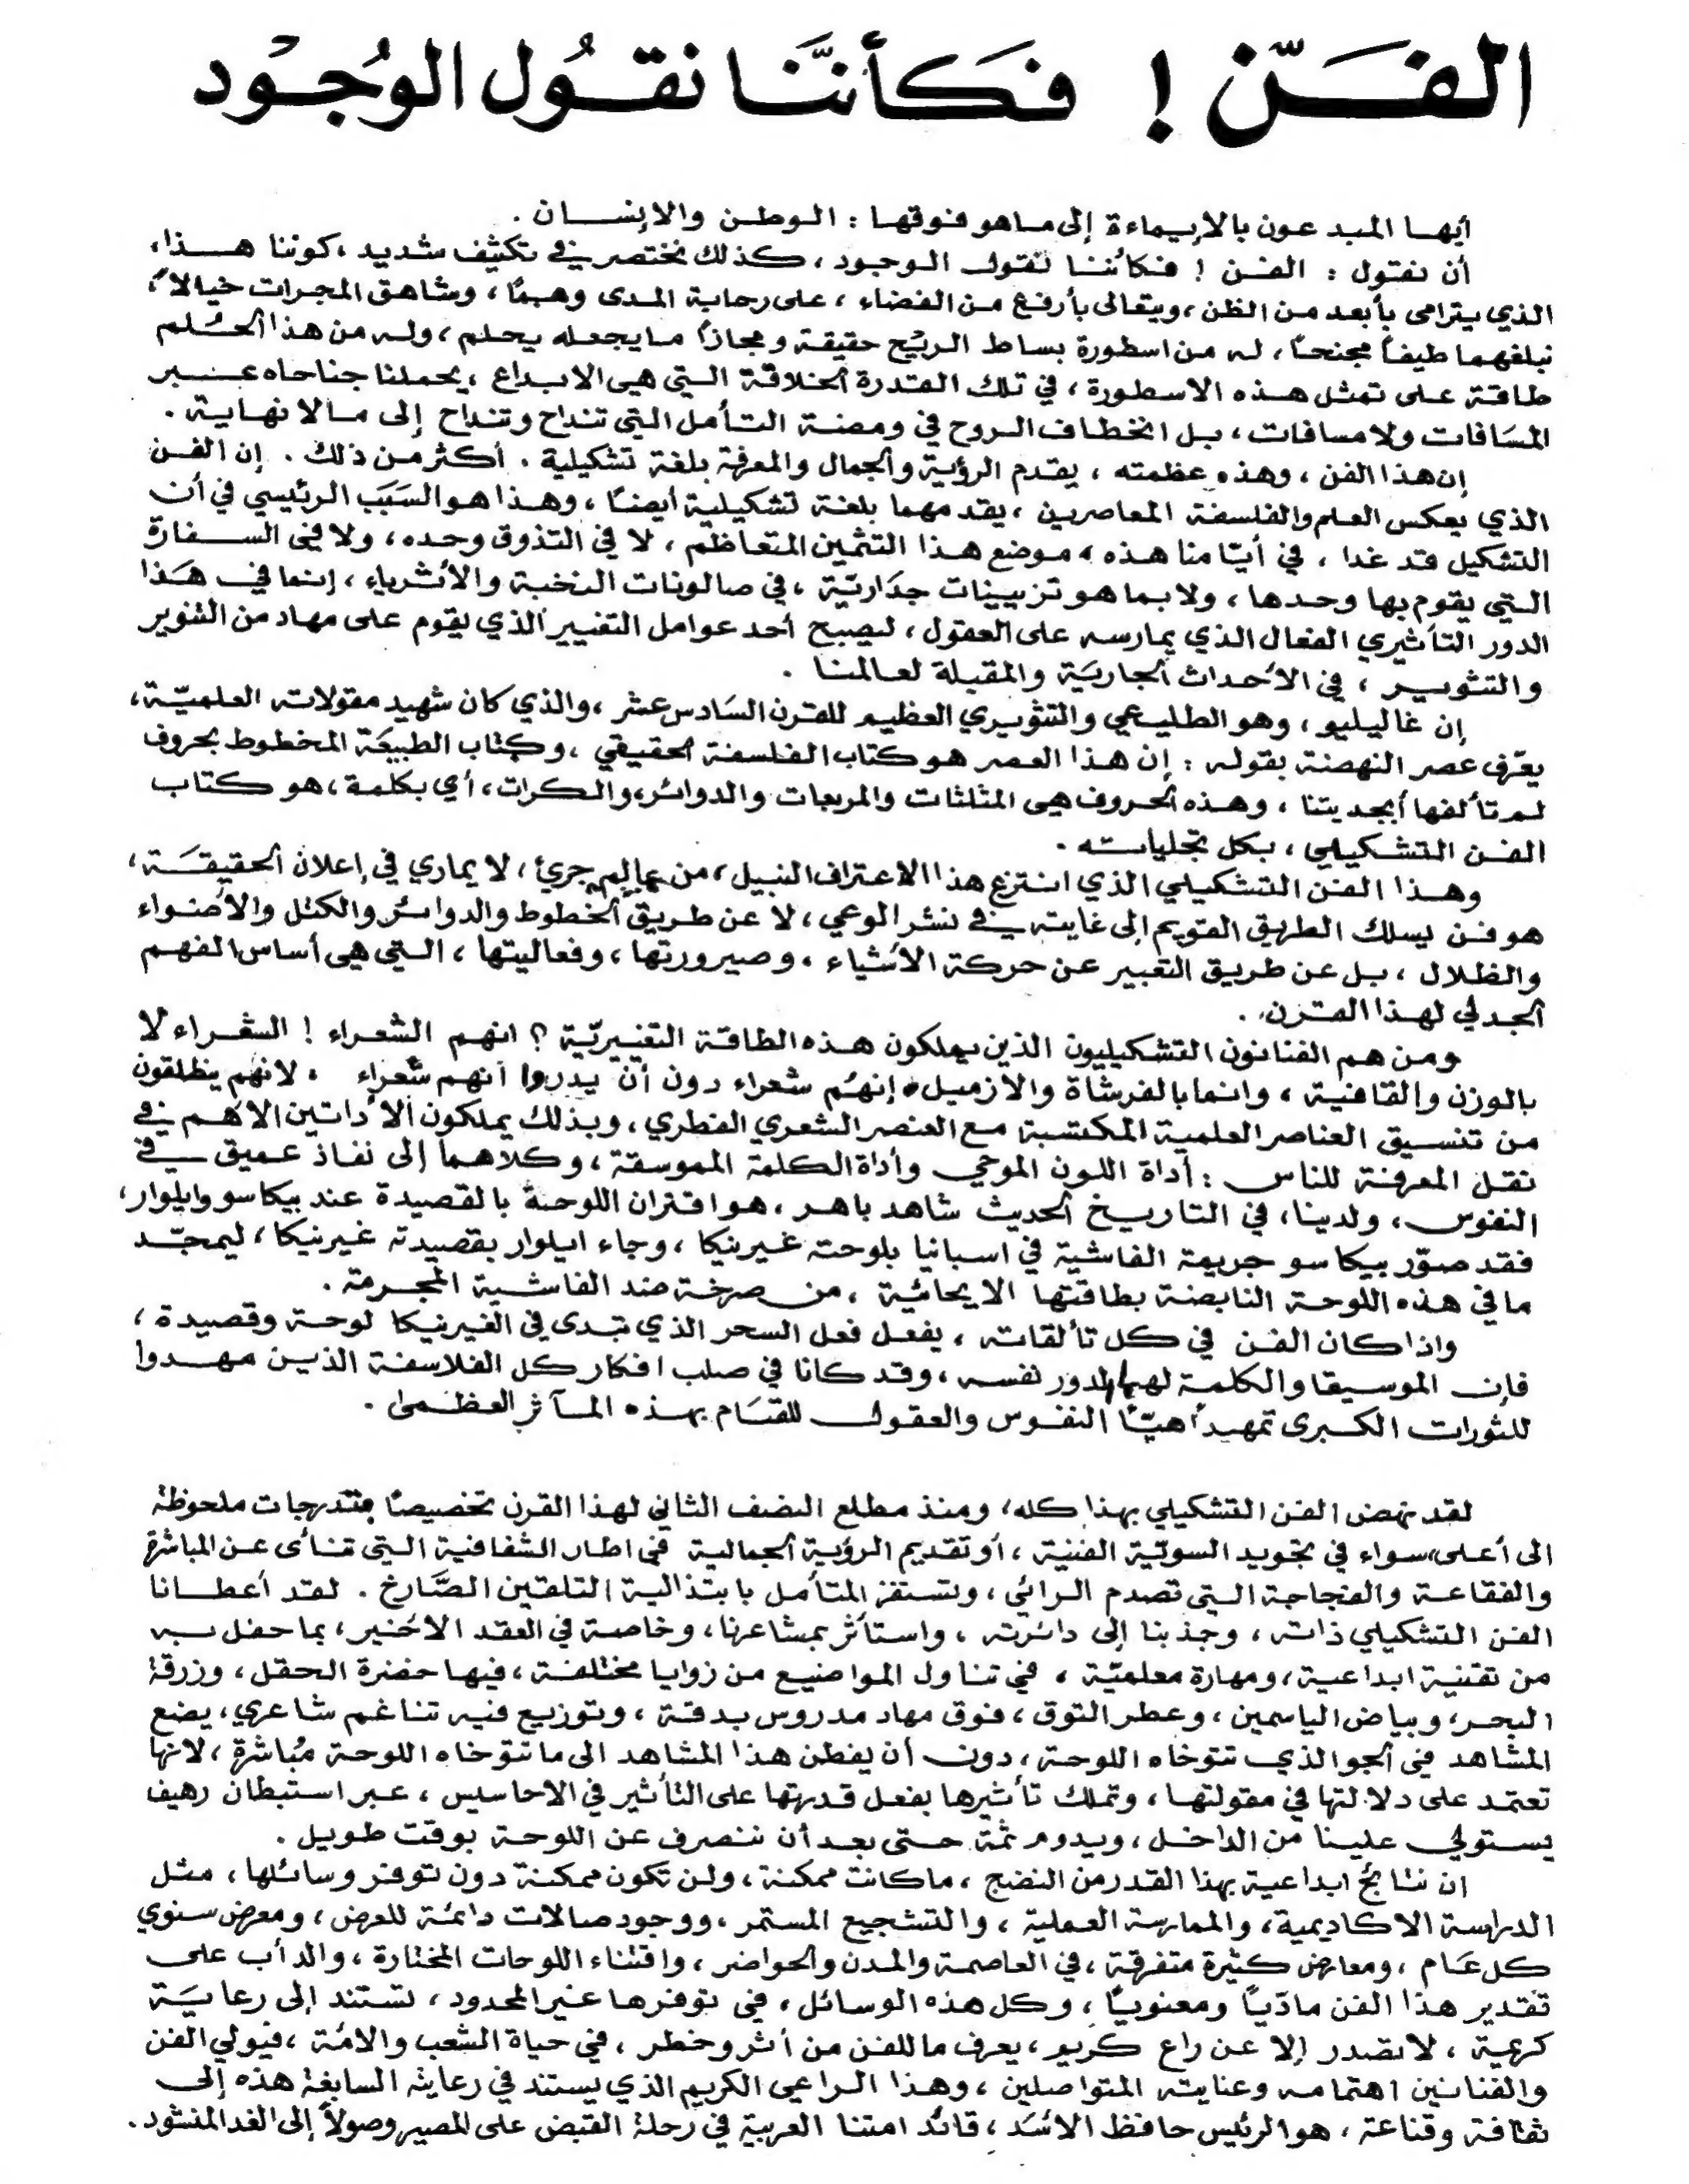 الفَنّ ! فَكَأنَّنا نقُول الوُجُوْد
أيها المبدعون بالإيماءة إلى ماهو فوقها : الوطن والإنسان .
أن نقول : الفن ! فكأننا نقول الوجود ، كذلك نختصر في تكثيف شديد ، كوننا هذا ،
الذي يترامى بأبعد من الظن ، ويتعالى بأرفع من الفضاء ، على رحابة المدى وهماً ، وشاهق المجرات خيالاً ،
نبلغهما طيفاً مجنحاً ، له من اسطورة بساط الريح حقيقة ومجازاً مايجعله يحلم ، وله من هذا الحُلم
طاقة على تمثل هذه الاسطورة ، في تلك القدرة الخلاقة التي هي الابداع ، يحملنا جناحاه عبر
المسَافات ولا مسافات ، بل انخطاف الروح في ومضة التأمل التي تنداح وتنداح إلى مالا نهاية .
إن هذا الفن ، وهذه عظمته ، يقدم الرؤية والجمال والمعرفة بلغة تشكيلية . أكثر من ذلك . إن الفن
الذي يعكس العلم والفلسفة المعاصرين ، يقدمهما بلغة تشكيلية أيضاً ، وهذا هو السَبَب الرئيسي في أن
التشكيل قد غدا ، في أيّامنا هذه ، موضع هذا التثمين المتعاظم ، لا في التذوق وحده ، ولا في السفارة
التي يقوم بها وحدها ، ولا بما هو تزيينات جدَاريّة ، في صالونات النخبة والأثرياء ، إنما في هَذا
الدور التأثيري الفعال الذي يمارسه على العقول ، ليصبح أحد عوامل التغيير الذي يقوم على مهاد من التنوير
والتثوير ، في الأحداث الجاريَة والمقبلة لعالمنا .
إن غاليليو ، وهو الطليعي والتنويري العظيم للقرن السَادس عشر ، والذي كان شهيد مقولاته العلميّة ،
يعّرف عصر النهضة بقوله : إن هذا العصر هو كتاب الفلسفة الحقيقي ، وكتاب الطبيعَة المخطوط بحروف
لم تألفها أبجديتنا ، وهذه الحروف هي المثلثات والمربعات والدوائر والكرات ، أي بكلمة ، هو كتاب
الفن التشكيلي ، بكل تجلياته .
وهذا الفن التشكيلي الذي انتزع هذا الاعتراف النبيل ، من عالِم جريئ ، لا يماري في إعلان الحقيقَة ،
هو فن يسلك الطريق القويم إلى غايته في نشر الوعي ، لا عن طريق الخطوط والدوائر والكتل والأضواء
والظلال ، بل عن طريق التعبير عن حركة الأشياء ، وصيرورتها ، وفعاليتها ، التي هي أساس الفهم
الجدلي لهذا القرن .
ومن هم الفنانون التشكيليون الذين يملكون هذه الطاقة التغييريّة ؟ انهم الشعراء ! الشعراء لا
بالوزن والقافية ، وانما بالفرشاة والازميل . إنهُم شعراء دون أن يدروا أنهم شعراء ، لانهم ينطلقون
من تنسيق العناصر العلمية المكتسبة مع العنصر الشعري الفطري ، وبذلك يملكون الأداتين الاهم في
نقل المعرفة للناس : أداة اللون الموحي وأداة الكلمة المموسقة ، وكلاهما إلى نفاذ عميق في
النفوس ، ولدينا ، في التاريخ الحديث شاهد باهر ، هو اقتران اللوحة بالقصيدة عند بيكاسو وايلوار ،
فقد صوّر بيكاسو جريمة الفاشية في اسبانيا بلوحته غيرنيكا ، وجاء ايلوار بقصيدته غيرنيكا ، ليمجّد
ما في هذه اللوحة النابضة بطاقتها الايحائية ، من صرخة ضد الفاشية المجرمة .
واذا كان الفن في كل تألقاته ، يفعل فعل السحر الذي تبدى في الغيرنيكا لوحة وقصيدة ،
فإن الموسيقا والكلمة لهما الدور نفسه ، وقد كانا في صلب افكار كل الفلاسفة الذين مهدوا
للثورات الكبرى تمهيداً هيّأ النفوس والعقول للقيَام بهذه المآثر العظمى .
لقد نهض الفن التشكيلي بهذا كله ، ومنذ مطلع النصف الثاني لهذا القرن تخصيصاً بتدرجات ملحوظة
الى أعلى سواء في تجويد السويّة الفنية ، أو تقديم الرؤية الجمالية في اطار الشفافية التي تنأى عن المباشرة
والفقاعة والفجاجة التي تصدم الرائي ، وتستفز المتأمل بابتذالية التلقين الصَّارخ . لقد أعطانا
الفن التشكيلي ذاته ، وجذبنا إلى دائرته ، واستأثر بمشاعرنا ، وخاصة في العقد الاخير ، بما حفل به
من تقنية ابداعية ، ومهارة معلميّة ، في تناول المواضيع من زوايا مختلفة ، فيها خضرة الحقل ، وزرقة
البحر ، وبياض الياسمين ، وعطر التوق ، فوق مهاد مدروس بدقة ، وتوزيع فيه تناغم شاعري ، يضع
المشاهد في الجو الذي تتوخاه اللوحة ، دون أن يفطن هذا المشاهد الى ما تتوخاه اللوحة مُباشرة ، لانها
تعتمد على دلالتها في مقولتها ، وتملك تأثيرها بفعل قدرتها على التأثير في الاحاسيس ، عبر استبطان رهيف
يستولي علينا من الداخل ، ويدوم ثمة حتى بعد أن ننصرف عن اللوحة بوقت طويل .
ان نتائج ابداعية بهذا القدر من النضج ، ماكانت ممكنة ، ولن تكون ممكنة دون توفر وسائلها ، مثل
الدراسة الاكاديمية ، والممارسة العملية ، والتشجيع المستمر ، ووجود صالات دائمة للعرض ، ومعرض سنوي
كل عَام ، ومعارض كثيرة متفرقة ، في العاصمة والمدن والحواضر ، واقتناء اللوحات المختارة ، والدأب على
تقدير هذا الفن مادّياً ومعنوياً ، وكل هذه الوسائل ، في توفرها غير المحدود ، تستند إلى رعايَة
كريمة ، لا تصدر إلا عن راع كريم ، يعرف ما للفن من أثر وخطر ، في حياة الشعب والامّة ، فيولي الفن
والفنانين اهتمامه وعنايته المتواصلين ، وهذا الراعي الكريم الذي يستند في رعايته السابغة هذه إلى
ثقافة وقناعة ، هو الرئيس حافظ الاسَد ، قائد امتنا العربية في رحلة القبض على المصير وصولاً إلى الغد المنشود .